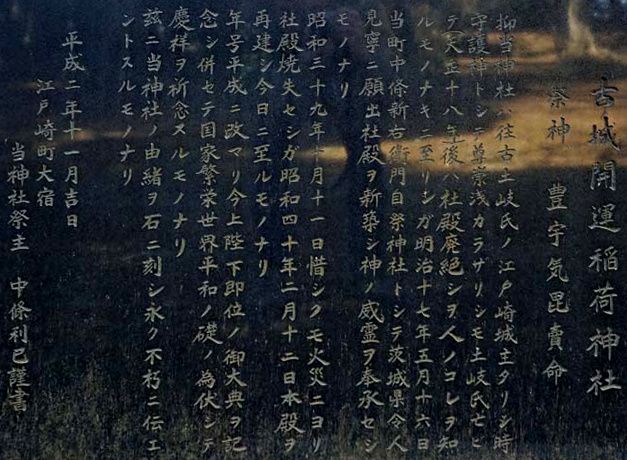 古城開運稲荷神社
祭神　豊宇気毘賣命
抑当神社ハ往古土岐氏ノ江戸崎城主タリシ時
守護神トシテ尊崇浅カラサリシモ土岐氏亡ヒ
テ天正十八年後ハ社殿廃絶シヲ人ノコレヲ知
ルモノナキニ至リシガ明治十七年五月十六日
当町中條新右衛門自祭神社トシテ茨城県令人
見寧ニ願出社殿ヲ新築シ神ノ威霊ヲ奉承セシ
モノナリ
昭和三十九年十月十一日惜シクモ火災ニヨリ
社殿焼失セシガ昭和四十年二月十二日本殿ヲ
再建シ今日ニ至ルモノナリ
年号平成ニ改マリ今上陛下即位ノ御大典ヲ記
念シ併セテ国家繁栄世界平和ノ礎ノ為伏シテ
慶祥ヲ祈念スルモノナリ
茲ニ当神社ノ由緒ヲ石ニ刻シ永ク不朽ニ伝エ
ントスルモノナリ
平成二年十一月吉日
江戸崎町大宿
当神社祭主　中條利巳謹書